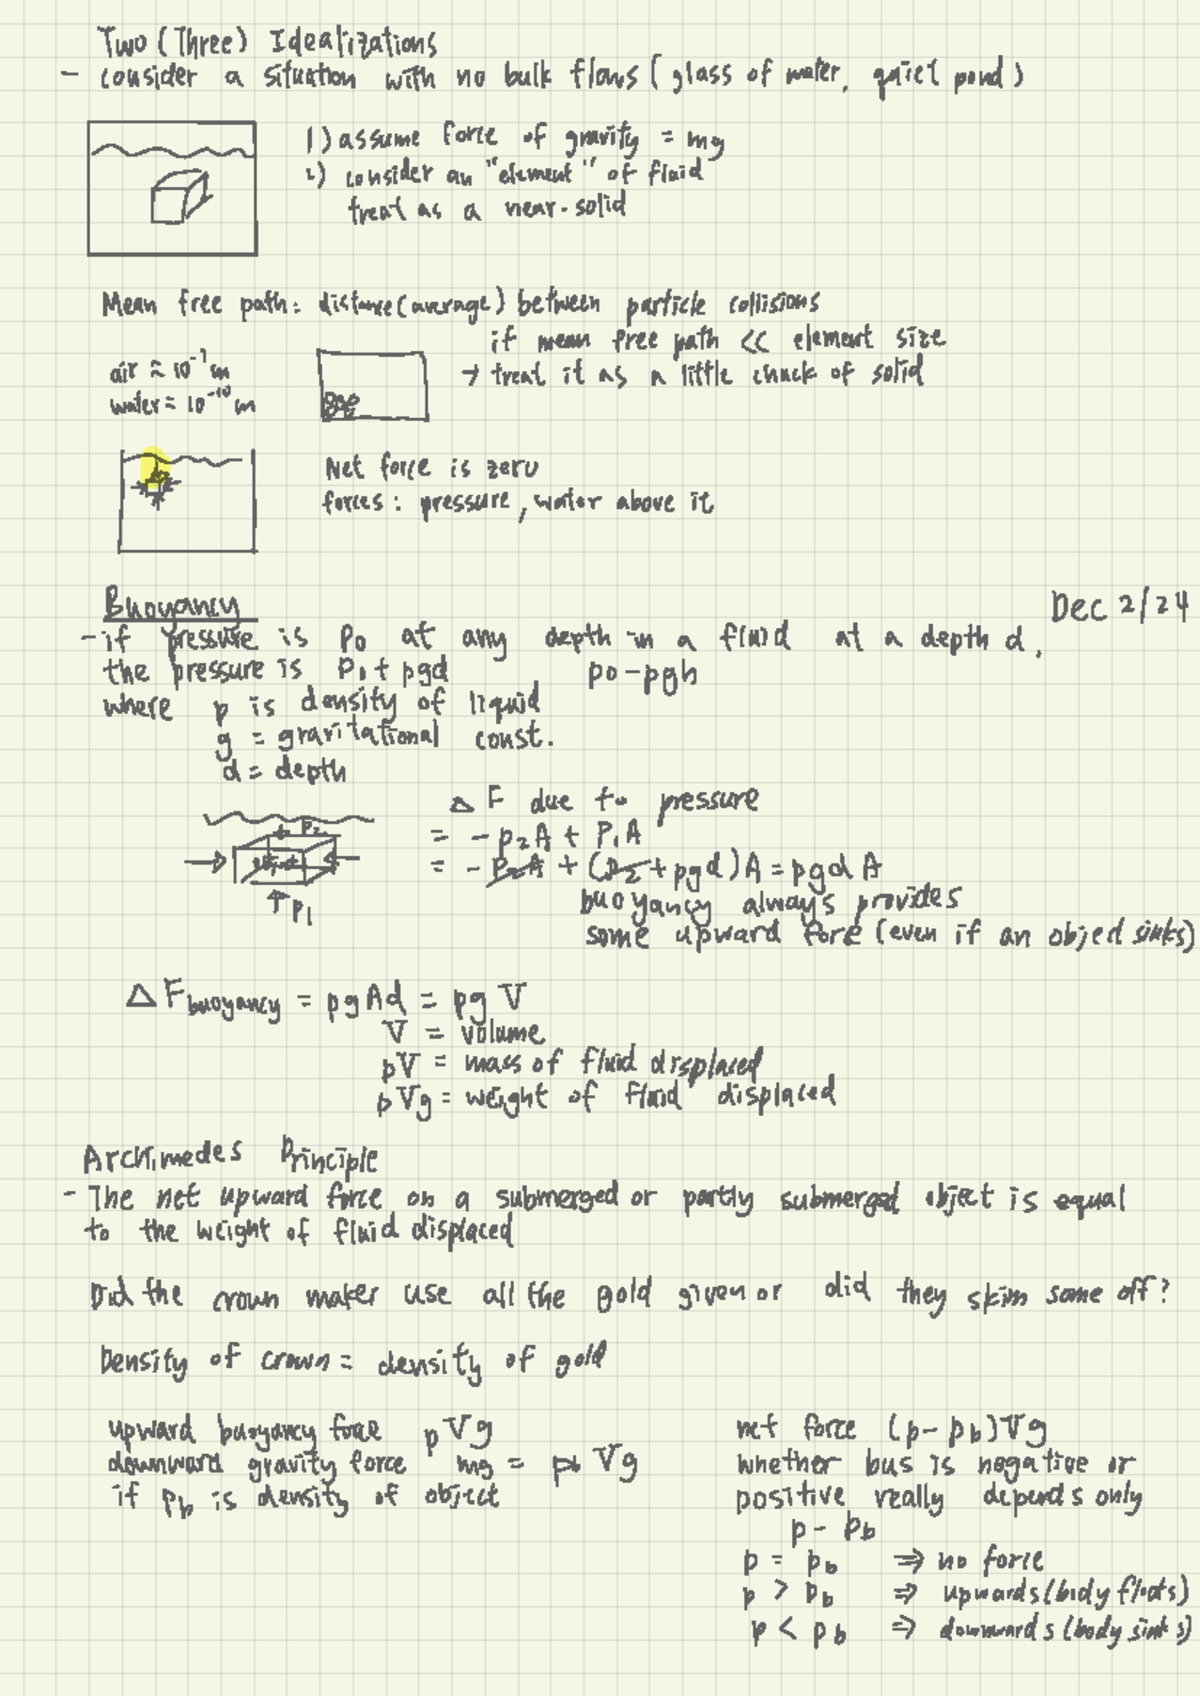 Two (Three) Idealizations
- consider a situation with no bulk flows (glass of water, quiet pond)
1) assume force of gravity = mg
2) consider an "element" of fluid
treat as a near-solid
Mean free path: distance (average) between particle collisions
if mean free path << element size
air ≈ 10⁻⁷ m
→ treat it as a little chunk of solid
water ≈ 10⁻¹⁰ m
Net force is zero
forces: pressure, water above it
Buoyancy
Dec 2/24
- if pressure is P₀ at any depth in a fluid at a depth d,
the pressure is P₀ + pgd
p₀ - pgh
where p is density of liquid
g = gravitational const.
d = depth
Δ F due to pressure
P₂
= -p₂A + P₁A
= -P₂A + (P₂ + pgd)A = pgdA
P₁
buoyancy always provides
some upward fore (even if an object sinks)
Δ Fbuoyancy = pgAd = pgV
V = volume
pV = mass of fluid displaced
pVg = weight of fluid displaced
Archimedes Principle
- The net upward force on a submerged or partly submerged object is equal
to the weight of fluid displaced
Did the crown maker use all the gold given or did they skim some off?
Density of crown = density of gold
upward buoyancy force pVg
downward gravity force mg = pb Vg
if pb is density of object
net force (p - pb)Vg
whether bus is negative or
positive really depends only
p - pb
p = pb ⇒ no force
p > pb ⇒ upwards (body floats)
p < pb ⇒ downwards (body sinks)